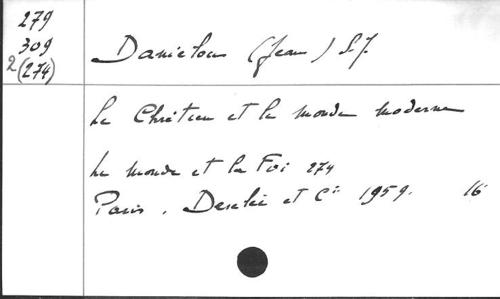 279
309
2 (274)
Danielou (Jean) S.J.
Le Chrétien et le monde moderne
Le monde et la Foi 274
Paris. Desclée et Cie 1959. 16